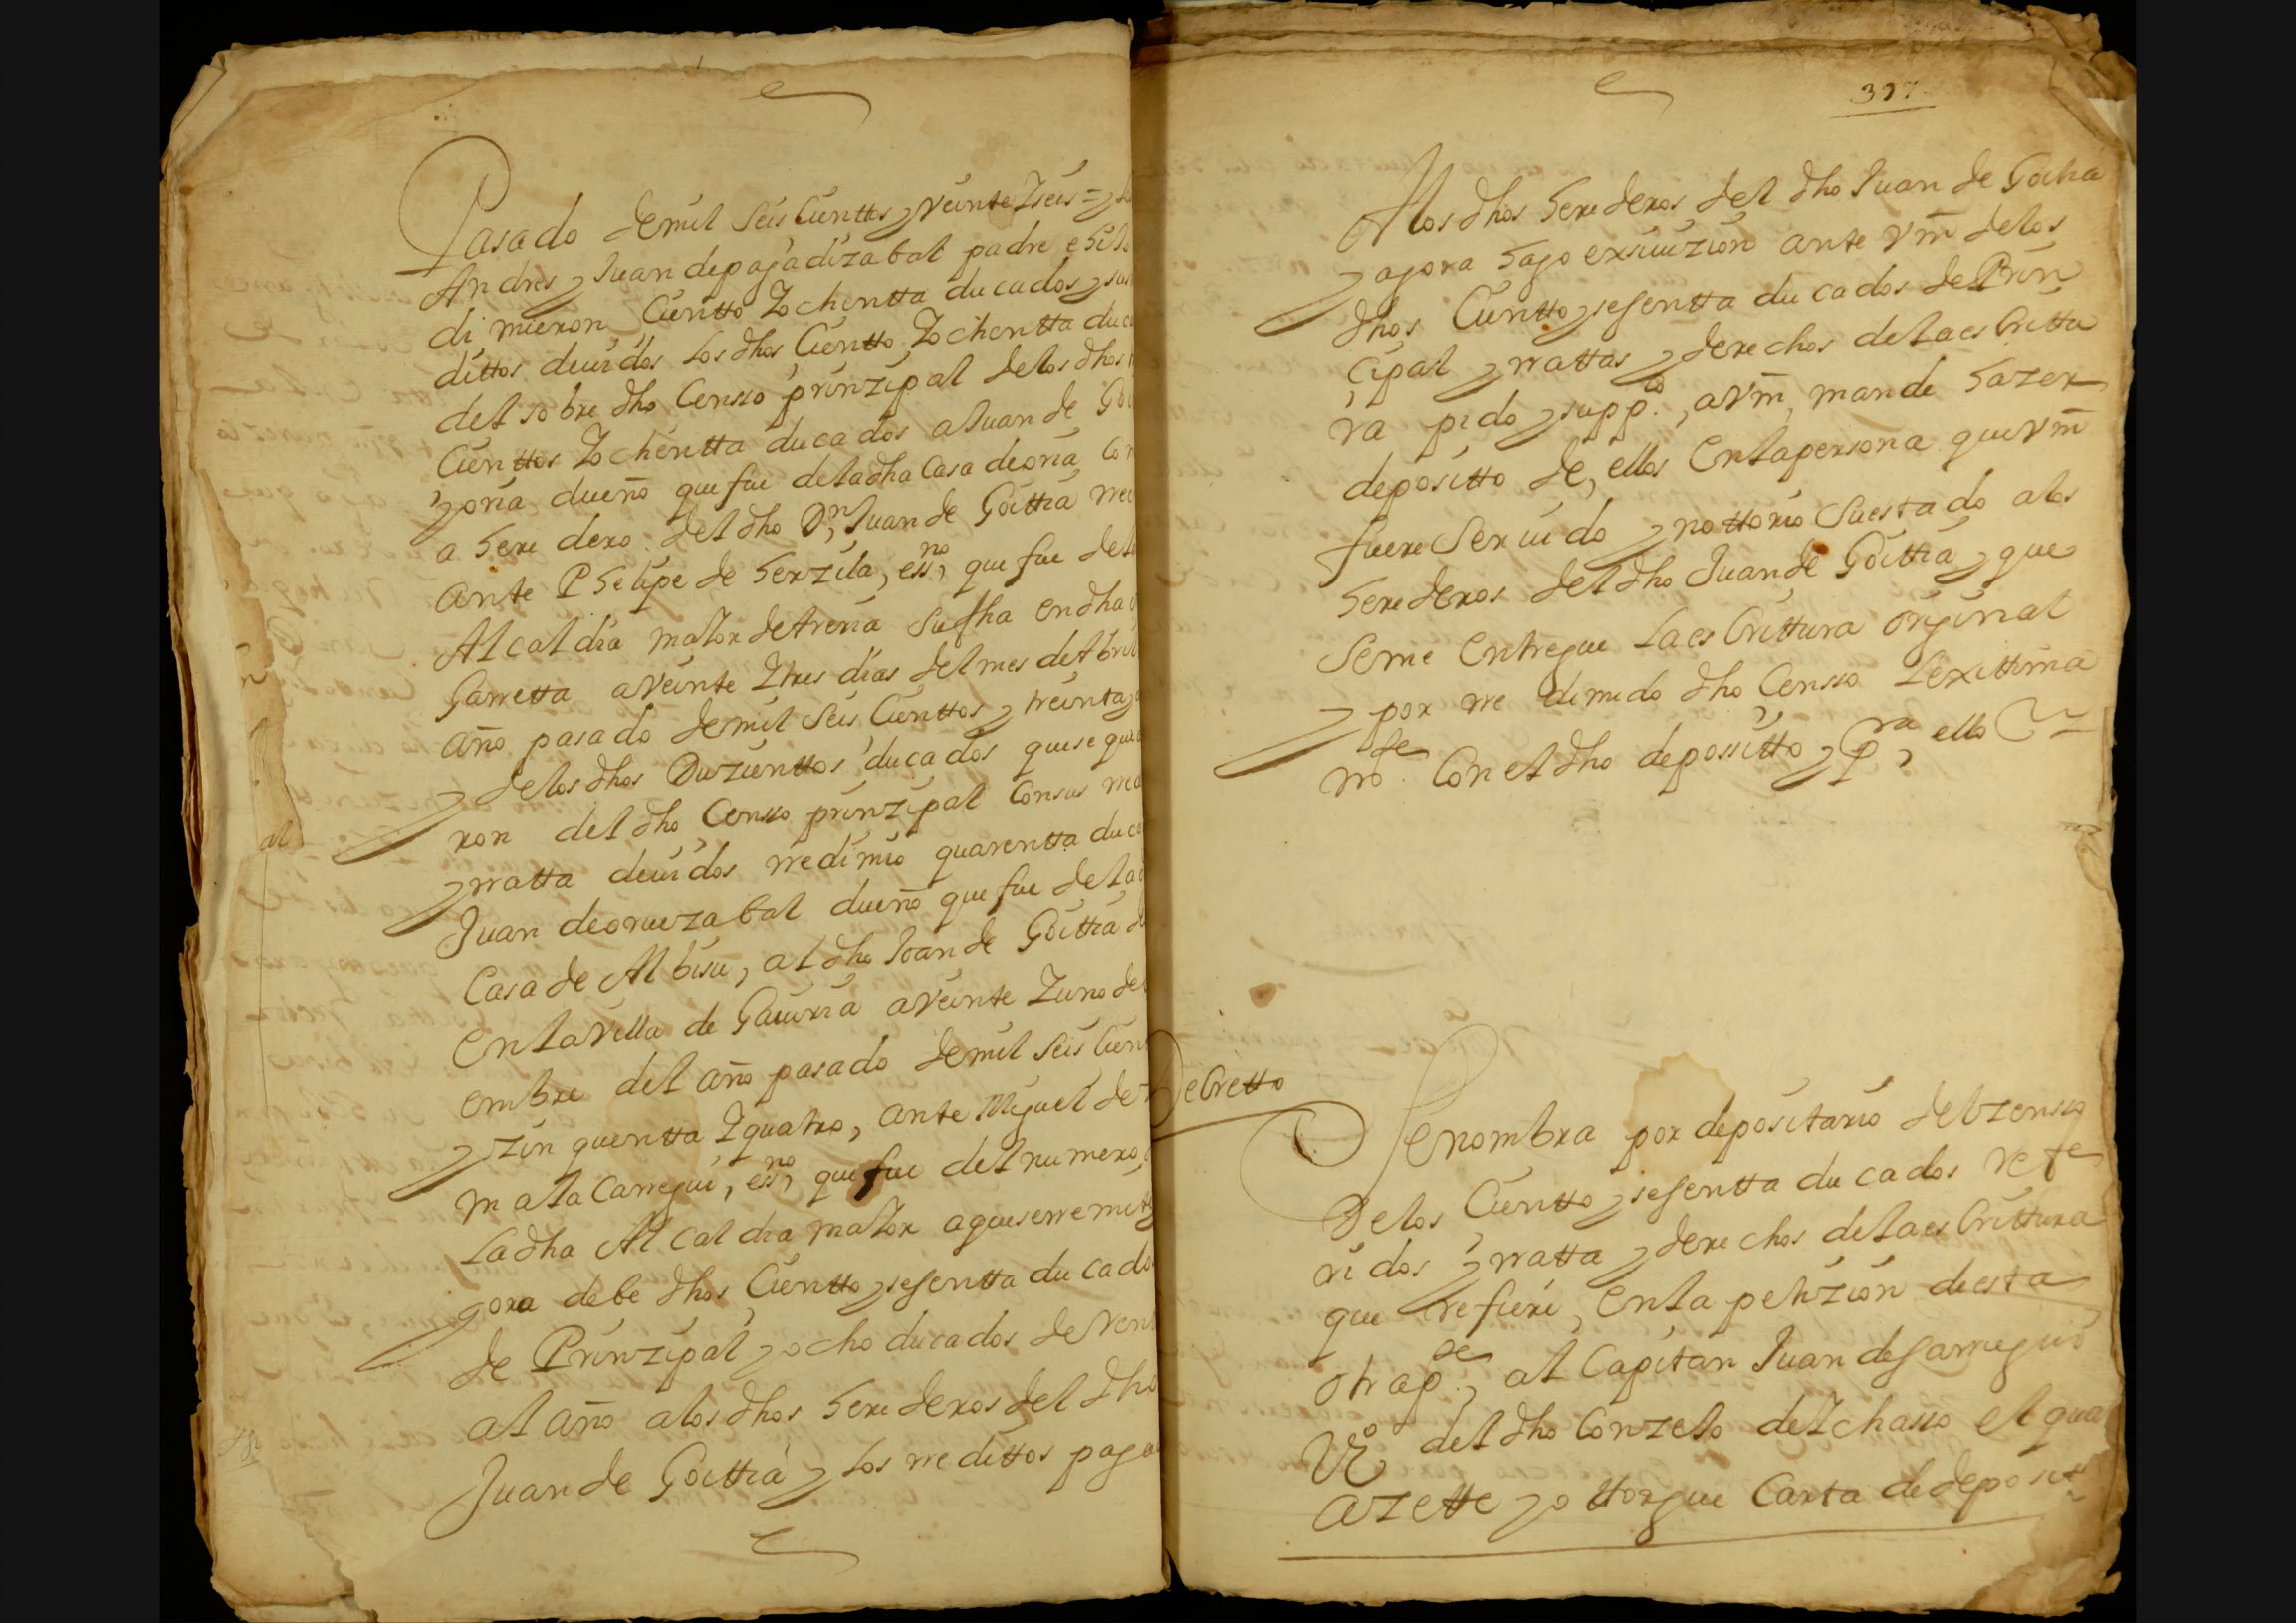 Pasado de mil seis cienttos y veinte Zseis = y
Andres y Juan de pagadizabal padre e hi
dimieron, Cientto Zochentta ducados y su
dittos deuidos los dhos Cientto Zochentta du
del sobre dho Censso prinzipal de los dhos
Cienttos Zochentta ducados a Juan de
y oria dueño que fue de la dha Casa de oria
a heredero del dho Dn Juan de Goittia
ante Phelipe de herzila, essno, que fue de
Alcaldia maior de Areria su fha en dha
Garretta a Veinte Ztres dias del mes de Abril
año pasado de mil seis Cienttos y treinta
y de los dhos Duzienttos ducados que se qu
ron del dho Censso prinzipal Con sus
y rratta deuidos rredimio quarentta duc
Juan de oruezabal dueño que fue de la
Casa de Albisu, al dho Joan de Goittia
en la Villa de Gauiria a Veinte Zuno de
embre del año pasado de mil seis Cien
y zinquentta Zquatro, ante Miguel de
matacarregui, essno, que fue del numero
la dha Alcaldia maior a que se rremite
gora debe dhos Cientto y sesentta ducado
de Prinzipal y ocho ducados de Ren
al año a los dhos herederos del dho
Juan de Goittia y los rredittos paga
397
A los dhos herederos del dho Juan de Goitia
y agora hago exsiuizion ante Vm de los
dhos Cientto y sesentta ducados de Prin
cipal y rrattas y derechos de la escrittu
ra pido y suppco, a Vm, mande hazer
depositto de, ellos en la persona que Vm
fuere seruido y nottorio su estado a los
herederos del dho Juan de Goittia y que
se me entregue la escrittura orijinal
y por rredimido dho Censso lexittima
mde Con el dho depossitto y pra, ello
Decretto
Se nombra por depositario del zensso
de los Cientto y sesentta ducados refe
ridos y rratta y derechos de la escrittura
que rrefiere, en la petizion de esta
otra pde, al Capitan Juan de Garregui
Vo del dho Conzelo de Ichasso el qua
azette y ottorgue Carta de deposit